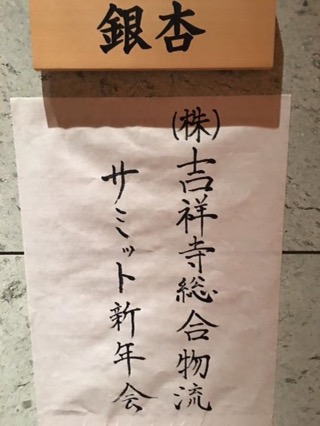 銀杏
(株)吉祥寺総合物流
サミット新年会